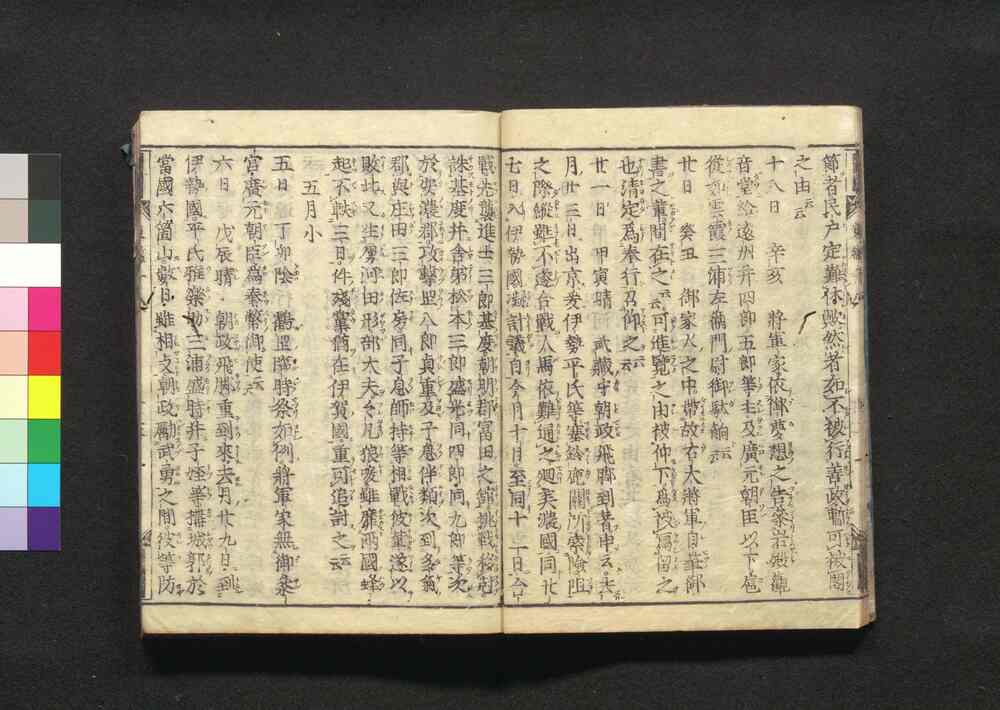 節者民戸定難休歟然者如不被行善政暫可被閣
之由云云
十八日　辛亥　將軍家依御夢想之告参岩殿觀
音堂給遠州并四郎五郎等主及廣元朝臣以下扈
從如雲霞三浦左衛門尉御駄餉云云
廿日　癸丑　御家人之中帶故右大將軍自筆御
書之輩間在之云云可進覽之由被仰下為被寫留之
也清定為奉行召仰之云云
廿一日　甲寅晴　武藏守朝政飛脚到著申云去
月廿三日出京爰伊勢平氏等塞鈴鹿關所索險阻
之際縱雖不遂合戰人馬依難通之廻美濃國同廿
七日入伊勢國凝計議自今月十日至同十二日合
戰先襲進士三郎基度朝明郡富田之舘挑戰移尅
誅基度并舎弟松本三郎盛光同四郎同九郎等次
於安濃郡攻撃 八郎貞重及子息伴類次到多氣
郡與庄田三郎佐房同子息師持等相戰彼輩遂以
敗北又生虜河田刑部大夫云云凡狼唳雖靡兩國蜂
起不軼三日件殘黨猶在伊賀國重可追討之云云
五月小
五日　丁卯陰　鶴岡臨時祭如例將軍家無御参
宮廣元朝臣為奉幣御使云云
六日　戊辰晴　朝政飛脚重到來去月廿九日到
伊勢國平氏雅樂助三浦盛時并子姪等搆城郭於
當國六箇山數日雖相支朝政勵武勇之間彼等防